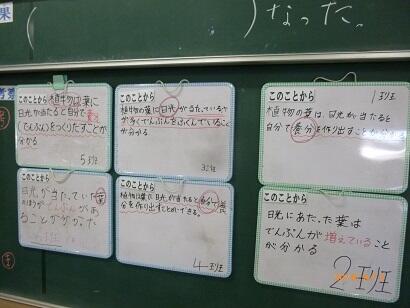 果
(　　　　) なった。
このことから 植物は葉に
日光が当たると自分で養分
(でんぷん)をつくりだすことが
分かる
5班
このことから
植物の葉に日光が当たっている方
が多くでんぷんをふくんでいること
が分かる
3班
このことから 1班
植物の葉は、日光が当たると
自分で養分を作り出すことが
このことから
日光が当たっていた葉
のほうが でんぷんがあ
ることが分かった
このことから
植物は葉に日光が当たると自分で養
分を作り出すことができる。
4班
このことから
日光にあたった葉は
でんぷんが増えていること
が分かる
2班